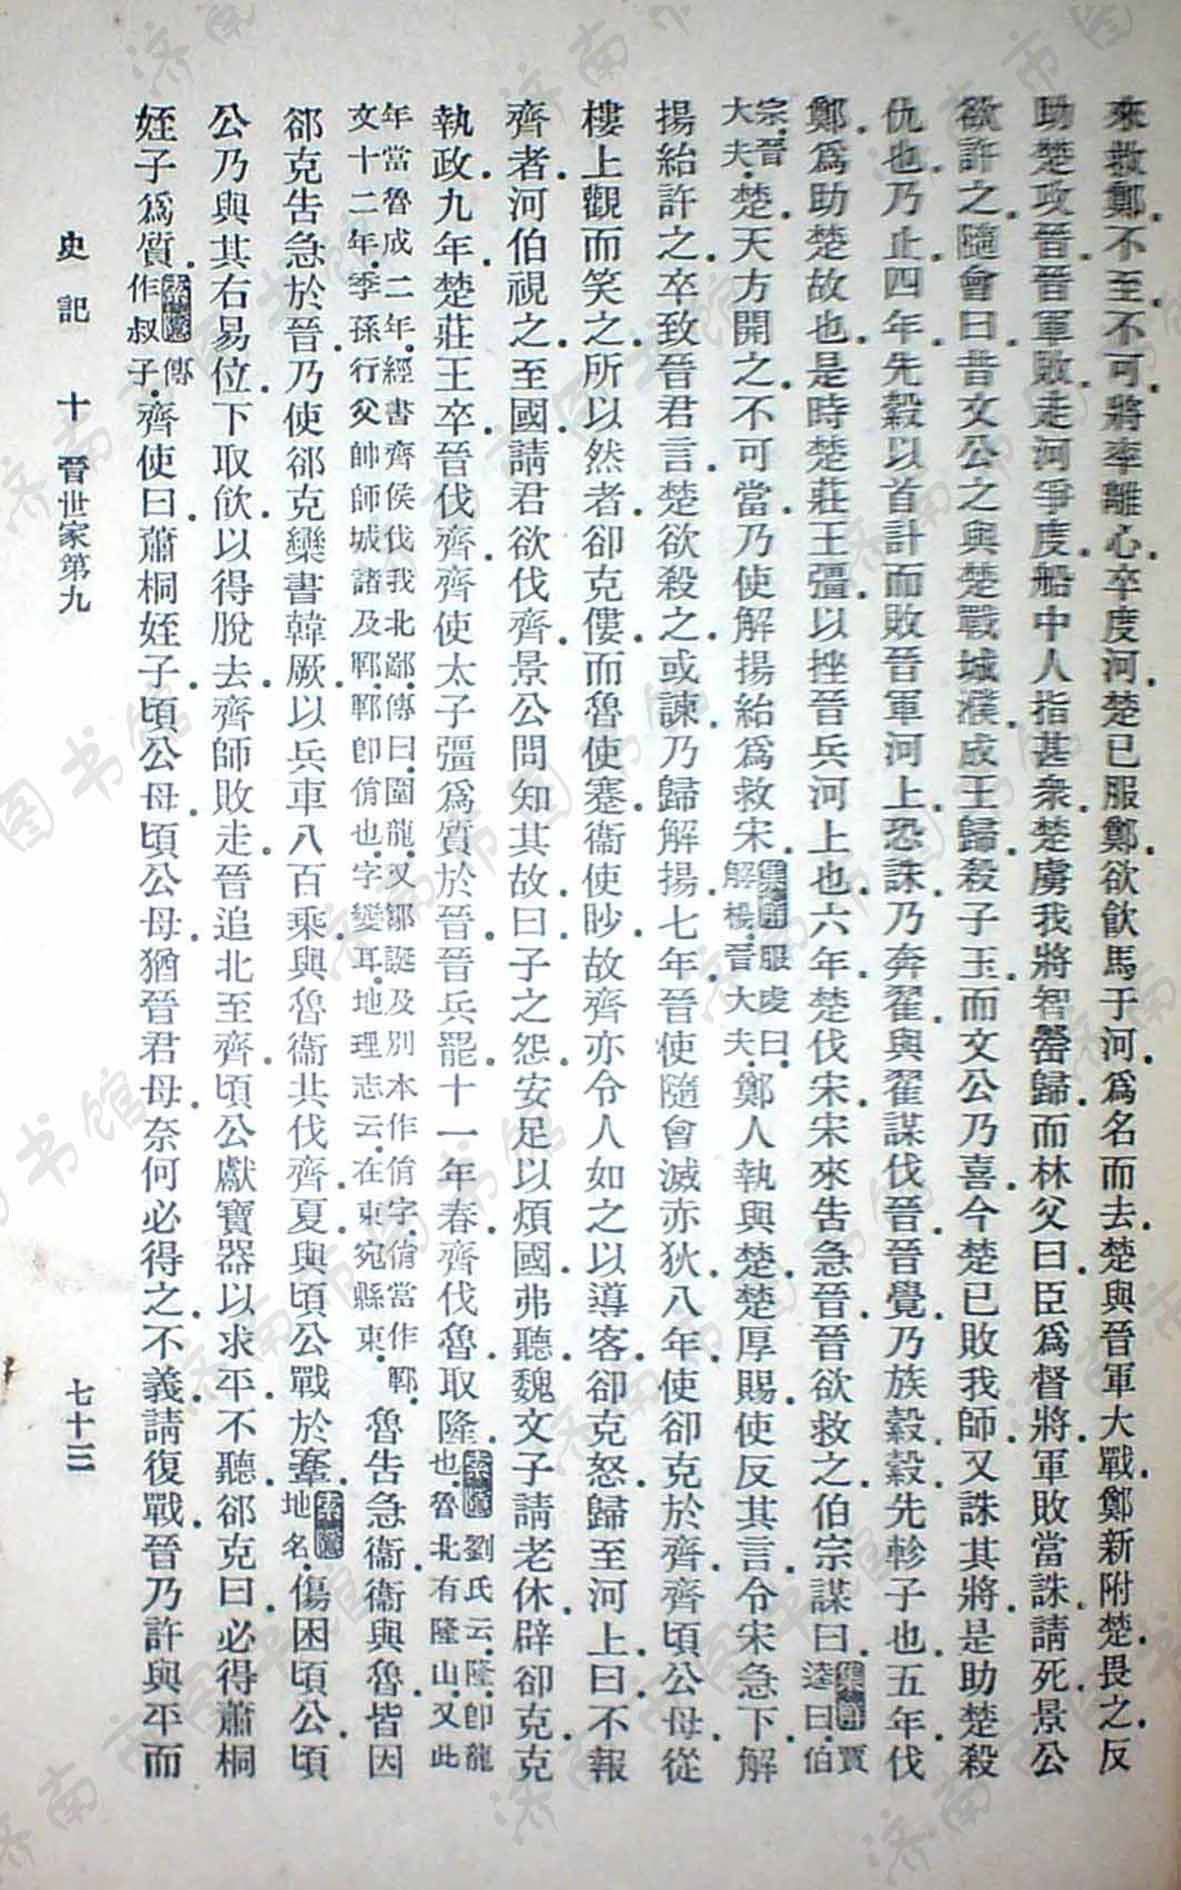 來救鄭.不至.不可.將率離心.卒度河.楚已服鄭.欲飲馬于河.爲名而去.楚與晉軍大戰.鄭新附楚.畏之.反
助楚攻晉.晉軍敗.走河.爭度.船中人指甚衆.楚虜我將智罃.歸.而林父曰.臣爲督將.軍敗當誅.請死.景公
欲許之.隨會曰.昔文公之與楚戰城濮.成王歸.殺子玉.而文公乃喜.今楚已敗我師.又誅其將.是助楚殺
仇也.乃止.四年.先縠以首計而敗晉軍河上.恐誅.乃奔翟.與翟謀伐晉.晉覺.乃族縠.縠.先軫子也.五年.伐
鄭.爲助楚故也.是時楚莊王彊.以挫晉兵河上也.六年.楚伐宋.宋來告急晉.晉欲救之.伯宗謀曰.集解賈逵曰.伯
宗.晉大夫.楚.天方開之.不可當.乃使解揚紿爲救宋.集解服虔曰.解楊.晉大夫.鄭人執與楚.楚厚賜.使反其言.令宋急下.解
揚紿許之.卒致晉君言.楚欲殺之.或諫.乃歸解揚.七年.晉使隨會滅赤狄.八年.使卻克於齊.齊頃公母.從
樓上觀而笑之.所以然者.卻克僂.而魯使蹇.衞使眇.故齊亦令人如之以導客.卻克怒.歸至河上.曰.不報
齊者.河伯視之.至國.請君欲伐齊.景公問知其故.曰.子之怨.安足以煩國.弗聽.魏文子請老休.辟卻克.克
執政.九年.楚莊王卒.晉伐齊.齊使太子彊爲質於晉.晉兵罷.十一年春.齊伐魯.取隆.索隱劉氏云.隆.卽龍也.魯北有隆山.又此
年當魯成二年.經書齊侯伐我北鄙.傳曰.圍龍.又鄒誕及別本作㑂字.㑂當作鄆.文十二年.季孫行父帥師城諸及鄆.鄆卽㑂也.字變耳.地理志云.在東宛縣東.魯告急衞.衞與魯.皆因
郤克告急於晉.乃使郤克欒書韓厥.以兵車八百乘.與魯衞共伐齊.夏.與頃公戰於鞌.索隱地名.傷困頃公.頃
公乃與其右易位.下取飮.以得脫去.齊師敗走.晉追北至齊.頃公獻寶器以求平.不聽.郤克曰.必得蕭桐
姪子爲質.索隱傳作叔子.齊使曰.蕭桐姪子.頃公母.頃公母.猶晉君母.奈何必得之.不義.請復戰.晉乃許與平而
史記 十 晉世家第九 七十三